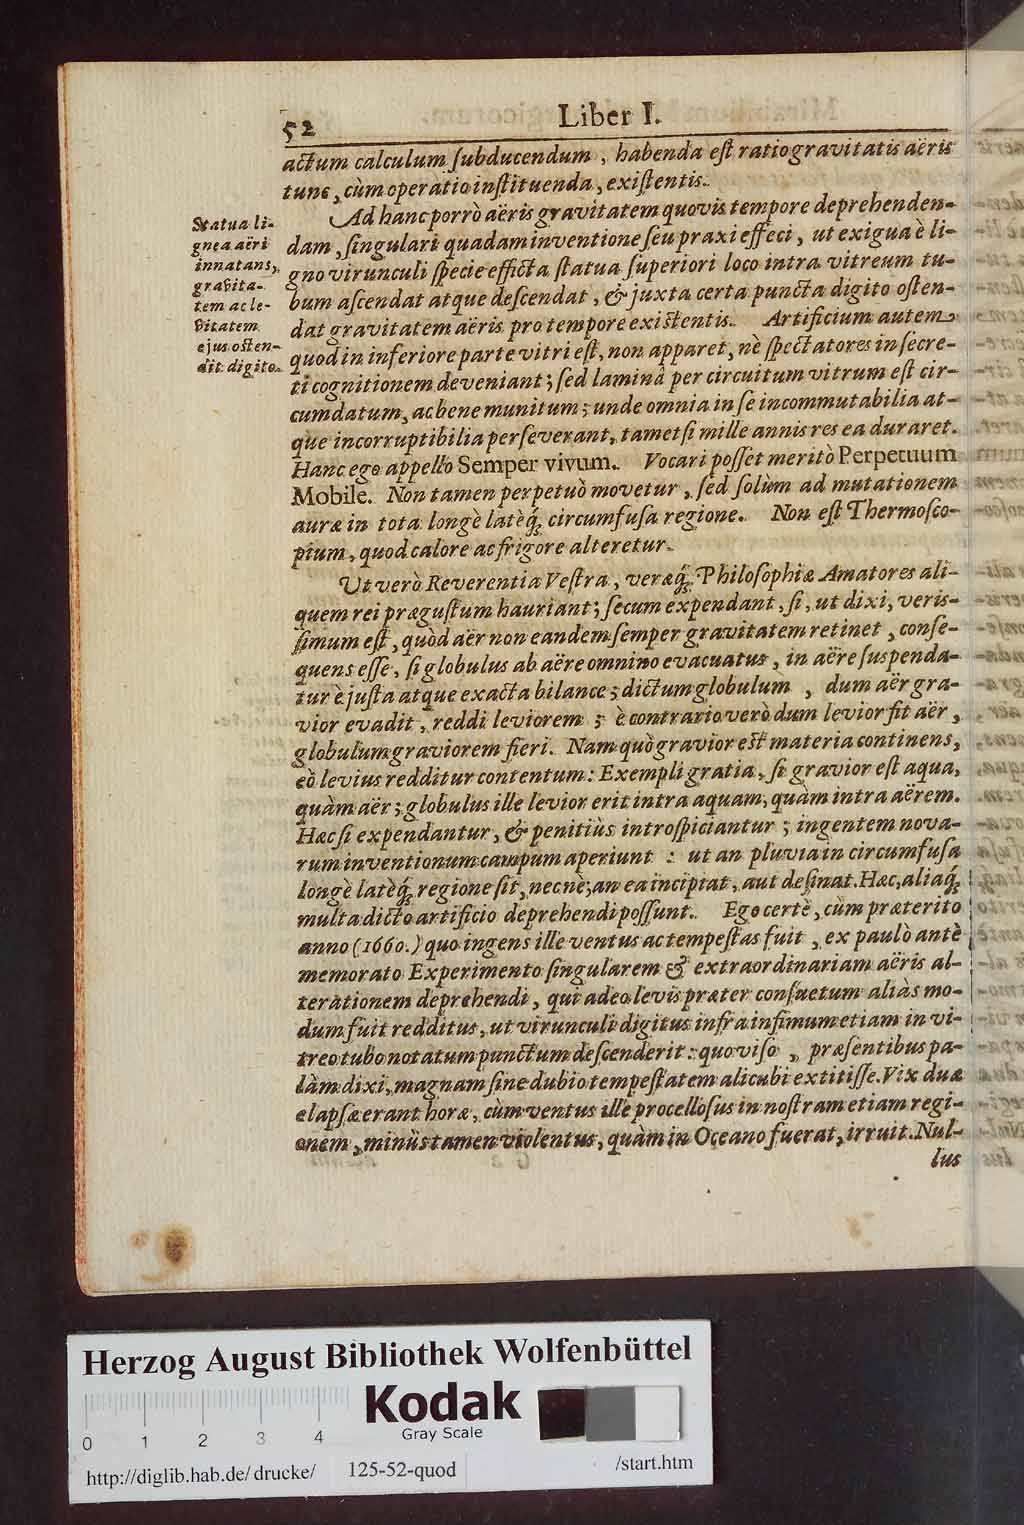 52
Liber I.
actum calculum ſubducendum, habenda eſt ratio gravitatis aëris
tunc, cùm operatio inſtituenda, exiſtentis.
Ad hanc porrò aëris gravitatem quovis tempore deprehenden-
dam, ſingulari quadam inventione ſeu praxi effeci, ut exigua è li-
gno virunculi ſpecie efficta ſtatua ſuperiori loco intra vitreum tu-
bum aſcendat atque deſcendat, & juxta certa puncta digito oſten-
dat gravitatem aëris pro tempore existentis. Artificium autem
quod in inferiore parte vitri eſt, non apparet, nè ſpectatores in ſecre-
ti cognitionem deveniant; ſed laminâ per circuitum vitrum eſt cir-
cumdatum, ac bene munitum; unde omnia in ſe incommutabilia at-
que incorruptibilia perſeverant, tametſi mille annis res ea duraret.
Hanc ego appello Semper vivum. Vocari poſſet meritò Perpetuum
Mobile. Non tamen perpetuò movetur, ſed ſolùm ad mutationem
auræ in tota longè latèq́; circumfuſa regione. Non eſt Thermoſco-
pium, quod calore ac frigore alteretur.
Statua li-
gnea aëri
innatans,
gravita-
tem ac le-
vitatem
ejus osten-
dit digito.
Ut verò Reverentia Veſtra, veræq́; Philoſophiæ Amatores ali-
quem rei præguſtum hauriant; ſecum expendant, ſi, ut dixi, veris-
ſimum eſt, quòd aër non eandem ſemper gravitatem retinet, conſe-
quens eſſe, ſi globulus ab aëre omnino evacuatus, in aëre ſuspenda-
tur è juſta atque exacta bilance; dictum globulum, dum aër gra-
vior evadit, reddi leviorem; è contrario verò dum levior fit aër,
globulum graviorem fieri. Nam quò gravior est materia continens,
eò levius redditur contentum: Exempli gratia, ſi gravior eſt aqua,
quàm aër; globulus ille levior erit intra aquam, quàm intra aërem.
Hæc ſi expendantur, & penitiùs introſpiciantur; ingentem nova-
rum inventionum campum aperiunt: ut an pluvia in circumfuſa
longè latèq́; regione ſit, necne; an ea incipiat, aut deſinat. Hæc, aliaq́;
multa dicto artificio deprehendi poſſunt. Ego certè, cùm præterito
anno (1660.) quo ingens ille ventus ac tempeſtas fuit, ex paulò antè
memorato Experimento ſingularem & extraordinariam aëris al-
terationem deprehendi, qui adeo levis præter conſuetum aliàs mo-
dum fuit redditus, ut virunculi digitus infra infimum etiam in vi-
treo tubo notatum punctum deſcenderit: quo viſo, præſentibus pa-
làm dixi, magnam ſine dubio tempeſtatem alicubi extitiſſe. Vix duæ
elapſæ erant horæ, cùm ventus ille procelloſus in noſtram etiam regi-
onem, minùs tamen violentus, quàm in Oceano fuerat, irruit. Nul-
lus
Herzog August Bibliothek Wolfenbüttel
Kodak
Gray Scale
0 1 2 3 4
http://diglib.hab.de/drucke/ 125-52-quod /start.htm